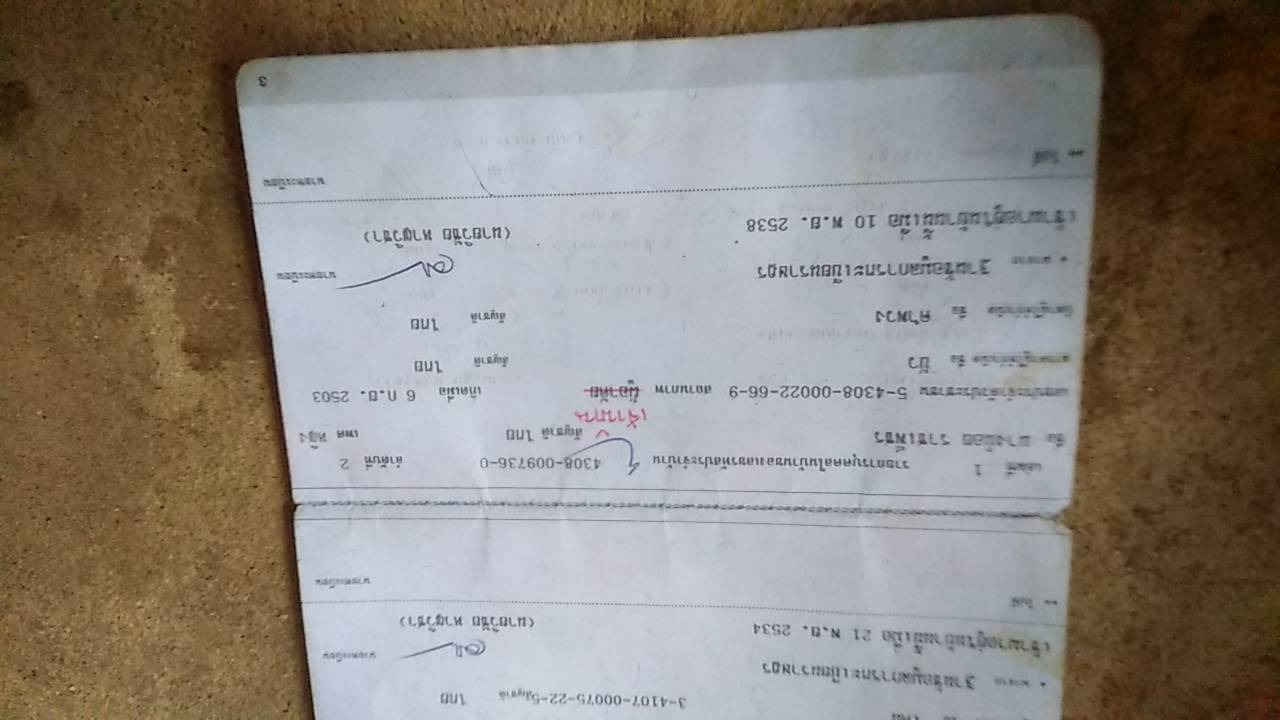 3-4107-00075-22-5 สัญชาติ ไทย
* มาจาก ฐานข้อมูลการทะเบียนราษฎร
นายทะเบียน
เข้ามาอยู่ในบ้านนี้เมื่อ 21 พ.ย. 2534
(นายวิชัย
** ไปที่
นายทะเบียน
เล่มที่ 1 รายการบุคคลในบ้านของเลขรหัสประจำบ้าน 4308-009736-0 ลำดับที่ 2
ชื่อ นางน้อย ราชเพียร สัญชาติ ไทย เพศ หญิง
เจ้าบ้าน
เลขประจำตัวประชาชน 5-4308-00022-66-9 สถานภาพ ผู้อาศัย เกิดเมื่อ 6 ก.ย. 2503
มารดาผู้ให้กำเนิด ชื่อ บัว สัญชาติ ไทย
บิดาผู้ให้กำเนิด ชื่อ สัญชาติ ไทย
* มาจาก ฐานข้อมูลการทะเบียนราษฎร
นายทะเบียน
เข้ามาอยู่ในบ้านนี้เมื่อ 10 พ.ย. 2538
(นายวิชัย
** ไปที่
นายทะเบียน
3